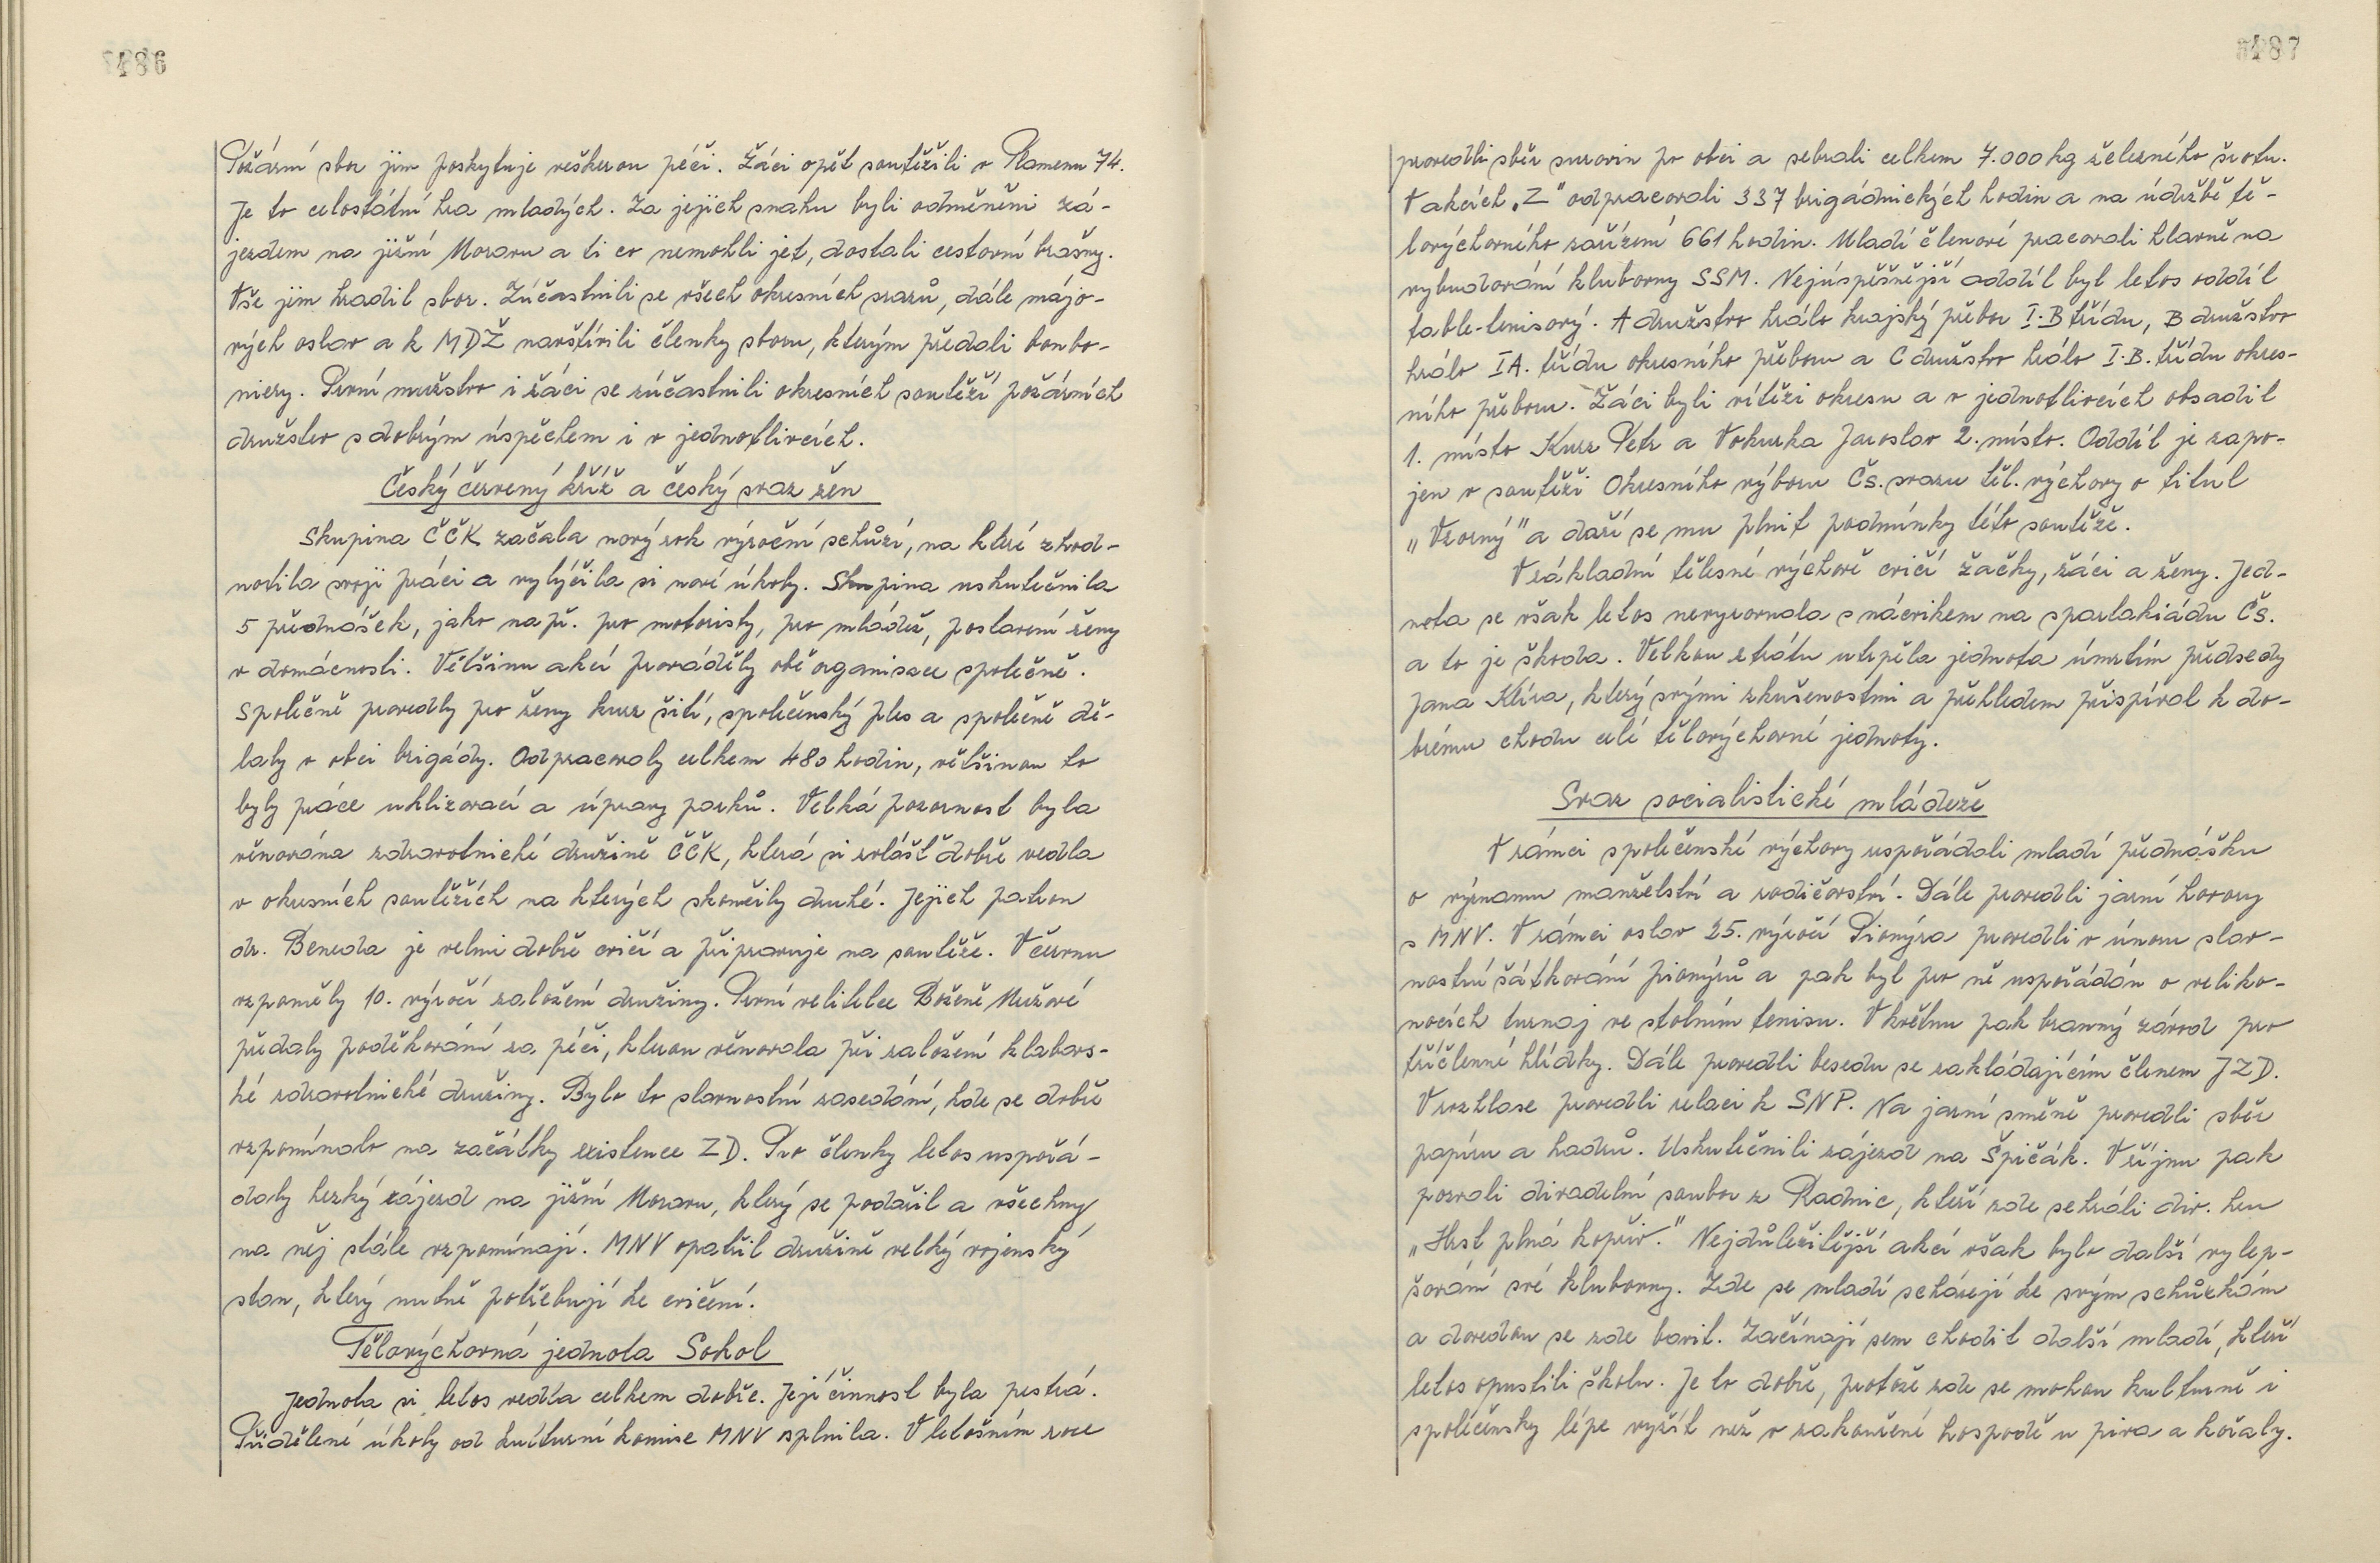 486
Požární sbor jim poskytuje veškerou péči. Žáci opět soutěžili v Plamenu 74.
Je to celostátní hra mladých. Za jejich snahu byli odměněni zá-
jezdem na jižní Moravu a ti co nemohli jet, dostali cestovní brašny.
Vše jim hradil sbor. Zúčastnili se všech okresních srazů, dále májo-
vých oslav a k MDŽ navštívili členky sboru, kterým předali bonbo-
niery. První mužstvo i žáci se zúčastnili okresních soutěží požárních
družstev s dobrým úspěchem i v jednotlivcích.
Český červený kříž a český svaz žen
Skupina ČČK začala nový rok výroční schůzí, na které zhod-
notila svoji práci a vylíčila si nové úkoly. Skupina uskutečnila
5 přednášek, jako např. pro motoristy, pro mládež, postavení ženy
v domácnosti. Většinu akcí prováděly obě organisace společně.
Společně provedly pro ženy kurz šití, společenský ples a společně dě-
laly v obci brigády. Odpracovaly celkem 480 hodin, většinou to
byly práce uklizovací a úpravy parků. Velká pozornost byla
věnována zdravotnické družině ČČK, která si zvlášť dobře vedla
v okresních soutěžích na kterých skončily druhé. Jejich patron
dr. Beneda je velmi dobře cvičí a připravuje na soutěže. V červnu
vzpoměly 10. výročí založení družiny. První velitelce Boženě Mužové
předaly poděkování za péči, kterou věnovala při založení klabavs-
ké zdravotnické družiny. Bylo to slavnostní zasedání, kde se dobře
vzpomínalo na začátky existence ZD. Pro členky letos uspořá-
daly hezký zájezd na jižní Moravu, který se podařil a všechny
na něj stále vzpomínají. MNV opatřil družině velký vojenský
stan, který nutně potřebují ke cvičení.
Tělovýchovná jednota Sokol
Jednota si letos vedla celkem dobře. Její činnost byla pestrá.
Přidělené úkoly od kulturní komise MNV splnila. V letošním roce
487
provedli sběr surovin po obci a sebrali celkem 7.000 kg železného šrotu.
V akcích „Z" odpracovali 337 brigádnických hodin a na údržbě tě-
lovýchovného zařízení 661 hodin. Mladí členové pracovali hlavně na
vybudování klubovny SSM. Nejúspěšnější oddíl byl letos oddíl
table-tenisový. A družstvo hrálo krajský přebor I.B třídu, B družstvo
hrálo IA. třídu okresního přeboru a C družstvo hrálo I.B. třídu okres-
ního přeboru. Žáci byli vítězi okresu a v jednotlivcích obsadil
1. místo Kurz Petr a Vokurka Jaroslav 2. místo. Oddíl je zapo-
jen v soutěži Okresního výboru Čs. svazu těl. výchovy o titul
„Vzorný" a daří se mu plnit podmínky této soutěže.
V základní tělesné výchově cvičí žačky, žáci a ženy. Jed-
nota se však letos nevyrovnala s nácvikem na spartakiádu Čs.
a to je škoda. Velkou ztrátu utrpěla jednota úmrtím předsedy
Jana Klíra, který svými zkušenostmi a přehledem přispíval k do-
brému chodu celé tělovýchovné jednoty.
Svaz socialistické mládeže
V rámci společenské výchovy uspořádali mladí přednášku
o významu manželství a rodičovství. Dále provedli jarní hovory
s MNV. V rámci oslav 25. výročí Pionýra provedli v únoru slav-
nostní šátkování pionýrů a pak byl pro ně uspořádán o veliko-
nocích turnaj ve stolním tenisu. V květnu pak branný závod pro
tříčlenné hlídky. Dále provedli besedu se zakládajícím členem JZD.
V rozhlase provedli relaci k SNP. Na jarní směně provedli sběr
papíru a hadrů. Uskutečnili zájezd na Špičák. V říjnu pak
pozvali divadelní soubor z Radnic, kteří zde sehráli div. hru
„Hrst plná kopřiv." Nejdůležitější akcí však bylo další vylep-
šování své klubovny. Zde se mladí scházejí ke svým schůzkám
a dovedou se zde bavit. Začínají sem chodit další mladí, kteří
letos opustili školu. Je to dobře, protože zde se mohou kulturně i
společensky lépe vyžít než v zakouřené hospodě u piva a kořaly.